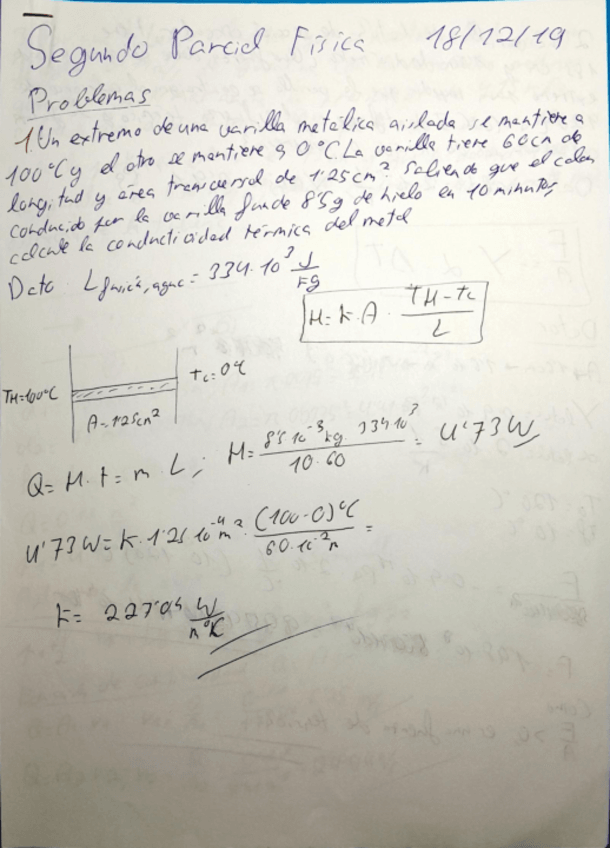 Segundo Parcial Física 18/12/19
Problemas
1. Un extremo de una varilla metálica aislada se mantiene a
100°C y el otro se mantiene a 0°C. La varilla tiene 60cm de
longitud y área transversal de 1'25cm². Sabiendo que el calor
conducido por la varilla funde 8'5g de hielo en 10 minutos,
calcule la conductividad térmica del metal
Dato: L fusión, agua = 334·10³ J/kg
H = k·A · (TH - Tc)/L
TH=100°C
Tc=0°C
A=1'25cm²
Q = H·t = m·L ; H = (8'5·10⁻³kg · 334·10³)/(10·60) = 4'73 W
4'73 W = K·1'25·10⁻⁴m² · (100-0)°C/(60·10⁻²m) =
k = 227'04 W/(m°K)